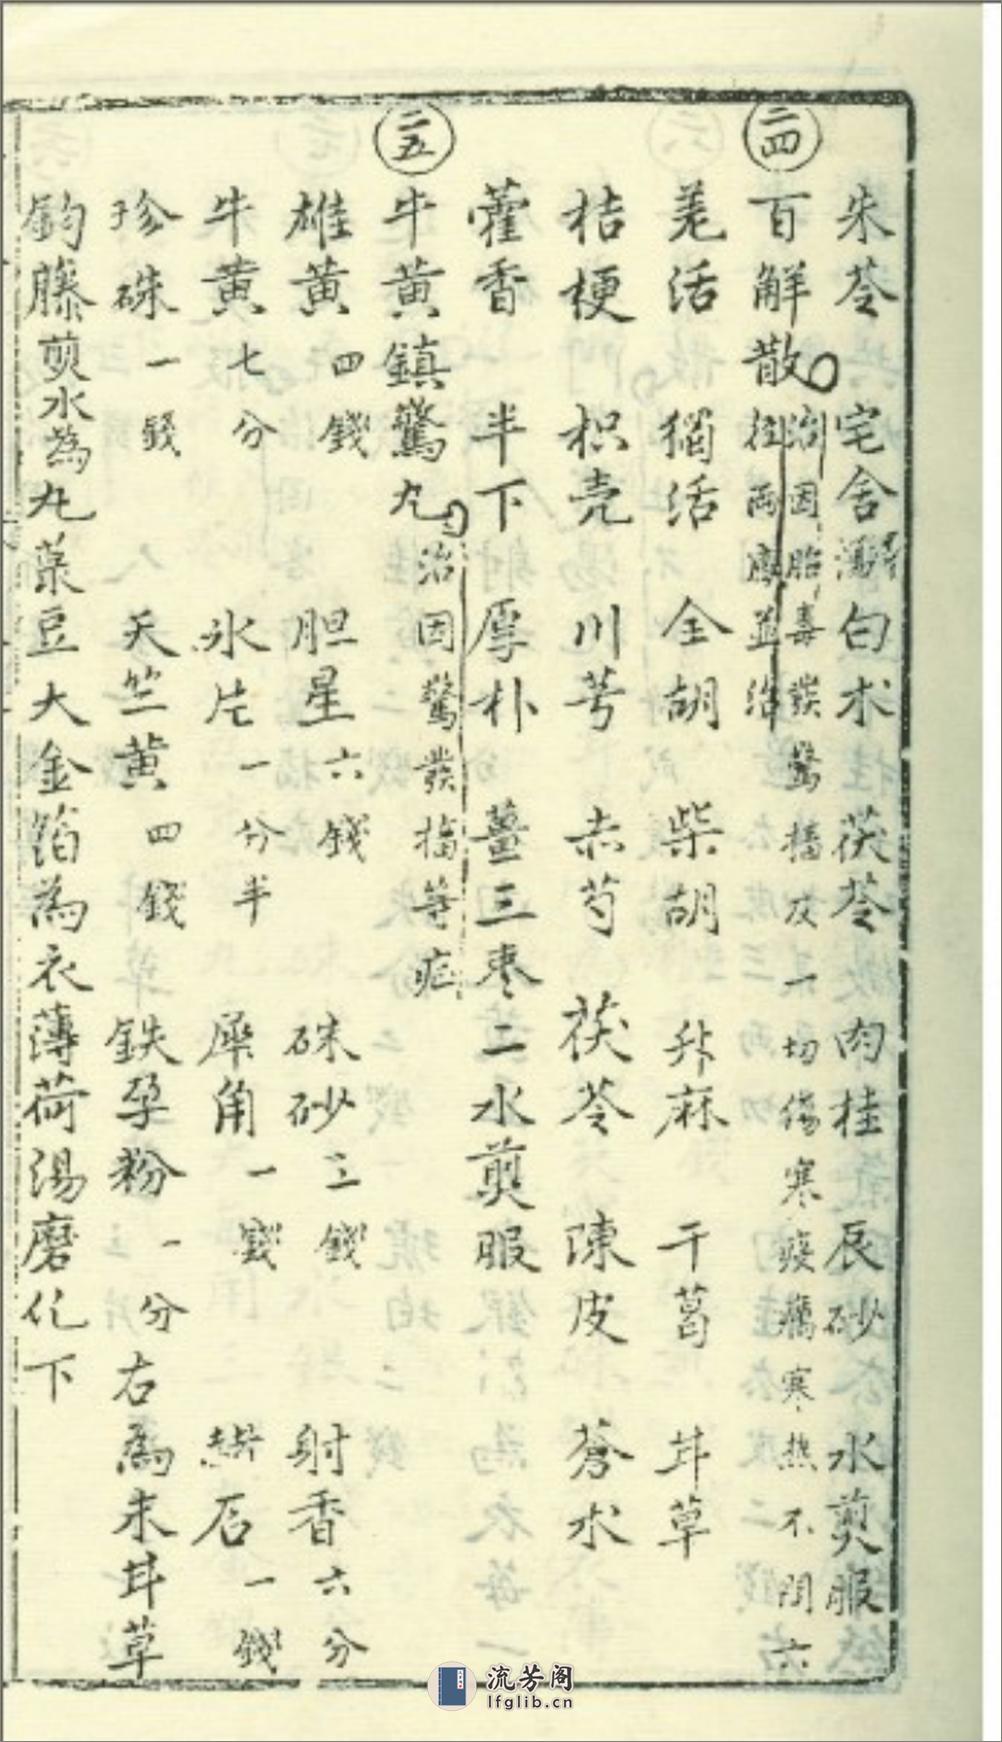 朱苓 宅舍 白术 茯苓 肉桂 辰砂 水煎服
二四 百解散 治因胎毒發驚搐及一切傷寒瘦癘寒熱不問六
極兩廖並治
羌活 獨活 全胡 柴胡 升麻 干葛 甘草
桔梗 枳壳 川芎 赤芍 茯苓 陳皮 蒼术
藿香 半下 厚朴 薑三枣二水煎服
二五 牛黄鎮驚丸 治因驚發搐等症
雄黄四錢 胆星六錢 硃砂三錢 射香六分
牛黄七分 氷片一分半 犀角一錢 石一錢
珍硃一錢 天竺黄四錢 鉄孕粉一分 右為末甘草
鈞藤煎水為丸菉豆大金箔為衣薄荷湯磨化下
流芳阁
lfglib.cn